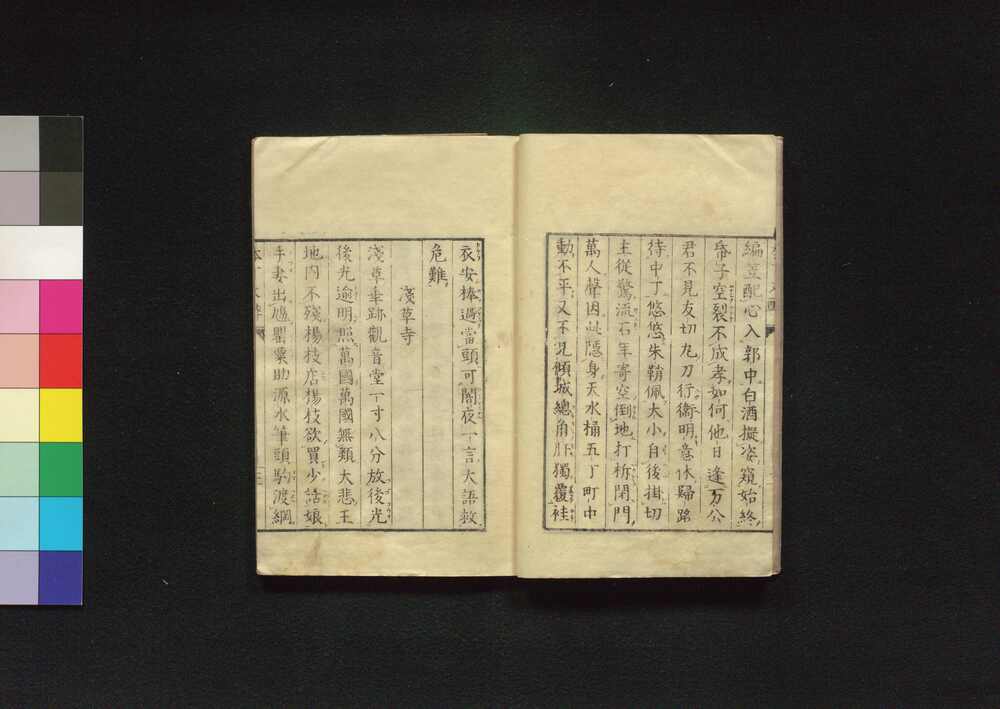 編笠配心入郭中白酒擬姿窺始終
帋子空裂不成孝如何他日逢万公
君不見友切丸刀行衞明意休歸路
待中丁悠悠朱鞘佩大小自後掛切
主從驚流石年寄空倒地打柝閉門
萬人聲因此隱身天水桶五丁町中
動不平又不見傾城總角 獨覆袿
衣安棒過當頭可闇夜一言大語救
危難
淺草寺
淺草垂跡觀音堂一寸八分放後光
後光逾明照萬國萬國無類大悲王
地内不殘楊枝店楊枝欲買少話娘
手妻出鳩罌粟助源水筆頭駒渡綱